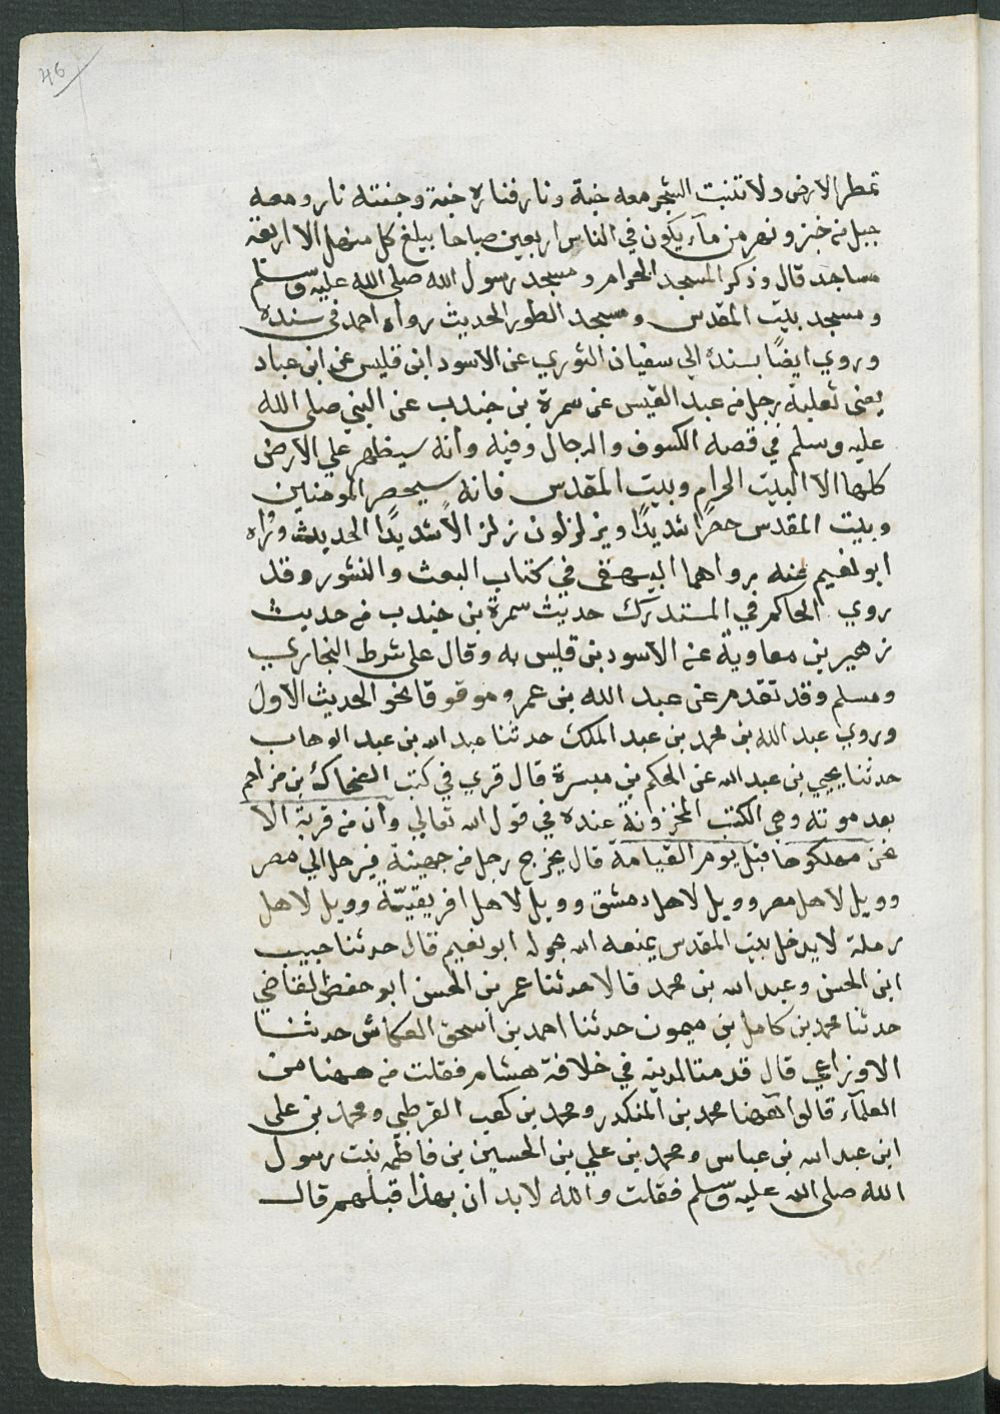 46
تمطر الارض ولا تنبت الشجر معه جنة ونار فناره جنة وجنته نار ومعه
جبل من خبز ونهر من مآء يكون في الناس اربعين صباحا يبلغ كل منهل الا اربعة
مساجد قال وذكر المسجد الحرام ومسجد رسول الله صلى الله عليه وسلم
ومسجد بيت المقدس ومسجد الطور الحديث رواه احمد في سنده
وروي ايضًا بسنده الي سفيان الثوري عن الاسود ابن قليس عن ابن عباد
يعني ثعلبة رجل من عبد القيس عن سمرة بن جندب عن النبي صلى الله
عليه وسلم في قصه الكسوف والدجال وفيه وانه سيظهر علي الارض
كلها الا البيت الحرام وبيت المقدس فانه سيحصر المومنين
وبيت المقدس حصرًا شديدًا ويزلزلون زلزالاً شديدًا الحديث ورواه
ابو لغيم عنه رواهما البيهقي في كتاب البعث والنشور وقد
روي الحاكم في المستدرك حديث سمرة بن جندب من حديث
زهير بن معاوية عن الاسود بن قليس به وقال على شرط البخاري
ومسلم وقد تقدم عن عبد الله بن عمرو موقوقا نحو الحديث الاول
وروي عبد الله بن محمد بن عبد الملك حدثنا عبد الله بن عبد الوهاب
حدثنا يحيي بن عبد الله عن الحكم بن ميسرة قال قري في كتب الضحاك بن مزاحم
بعد موته وهي الكتب المخزونة عنده في قول الله تعالي وان من قرية الا
نحن مهلكوها قبل يوم القيامة قال يخرج رجل من جهينة فيرحل الي مصر
وويل لاهل مصر وويل لاهل دمشق وويل لاهل افريقيّة وويل لاهل
رملة لا يدخل بيت المقدس يمنعه الله بحوله ابو نعيم قال حدثنا حبيب
ابن الحسن وعبد الله بن محمد قالا حدثنا عمر بن الحسن ابو حفص القاضي
حدثنا محمد بن كامل بن ميمون حدثنا احمد بن اسحق العكاشى حدثنا
الاوزاعي قال قدمت المدينه في خلافة هشام فقلت من ههنا من
العلمآء قالوا ههنا محمد بن المنكدر ومحمد بن كعب القرظي ومحمد بن على
ابن عبد الله بن عباس ومحمد بن علي بن الحسين بن فاطمه بنت رسول
الله صلى الله عليه وسلم فقلت والله لابد ان بهذا قبلهم قال